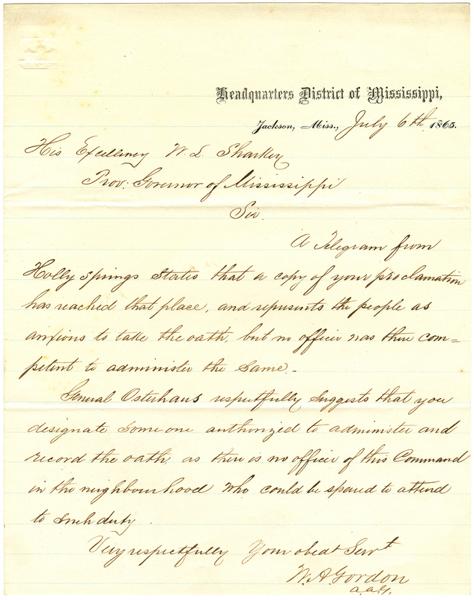 Headquarters District of Mississippi,
Jackson, Miss., July 6th 1865.
His Excellency W L Sharkey
Prov: Governor of Mississippi
Sir
A Telegram from
Holly Springs States that a copy of your proclamation
has reached that place, and represents the people as
anxious to take the oath, but no officer was there com-
petent to administer the Same.
General Osterhaus respectfully suggests that you
designate some one authorized to administer and
record the oath, as there is no officer of this Command
in the neighbourhood who could be spared to attend
to such duty.
Very respectfully Your obedt Servt
W. A Gordon
a.a.G.